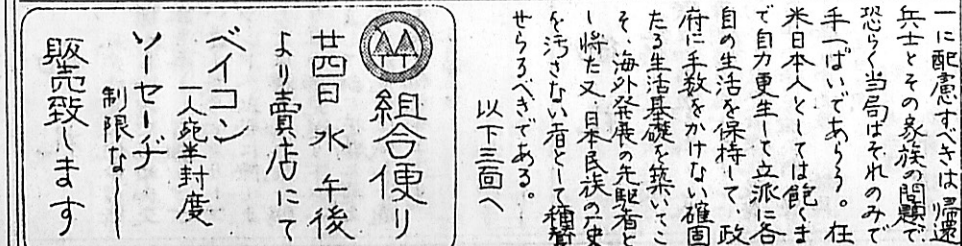 一に配慮すべきは帰還
兵士とその家族の問題で
恐らく当局はそれのみで
手一ぱいであらう。在
米日本人としては飽くま
で自力更生して立派に各
自の生活を保持して、政
府に手数をかけない確固
たる生活基礎を築いてこ
そ、海外発展の先駆者と
し将た又、日本民族の歴史
を汚さない者として
せらるべきである。
以下三面へ
組合便り
廿四日 水 午後
より賣店にて
ベイコン
一人宛半封度
ソーセーヂ
制限なし
販売致します